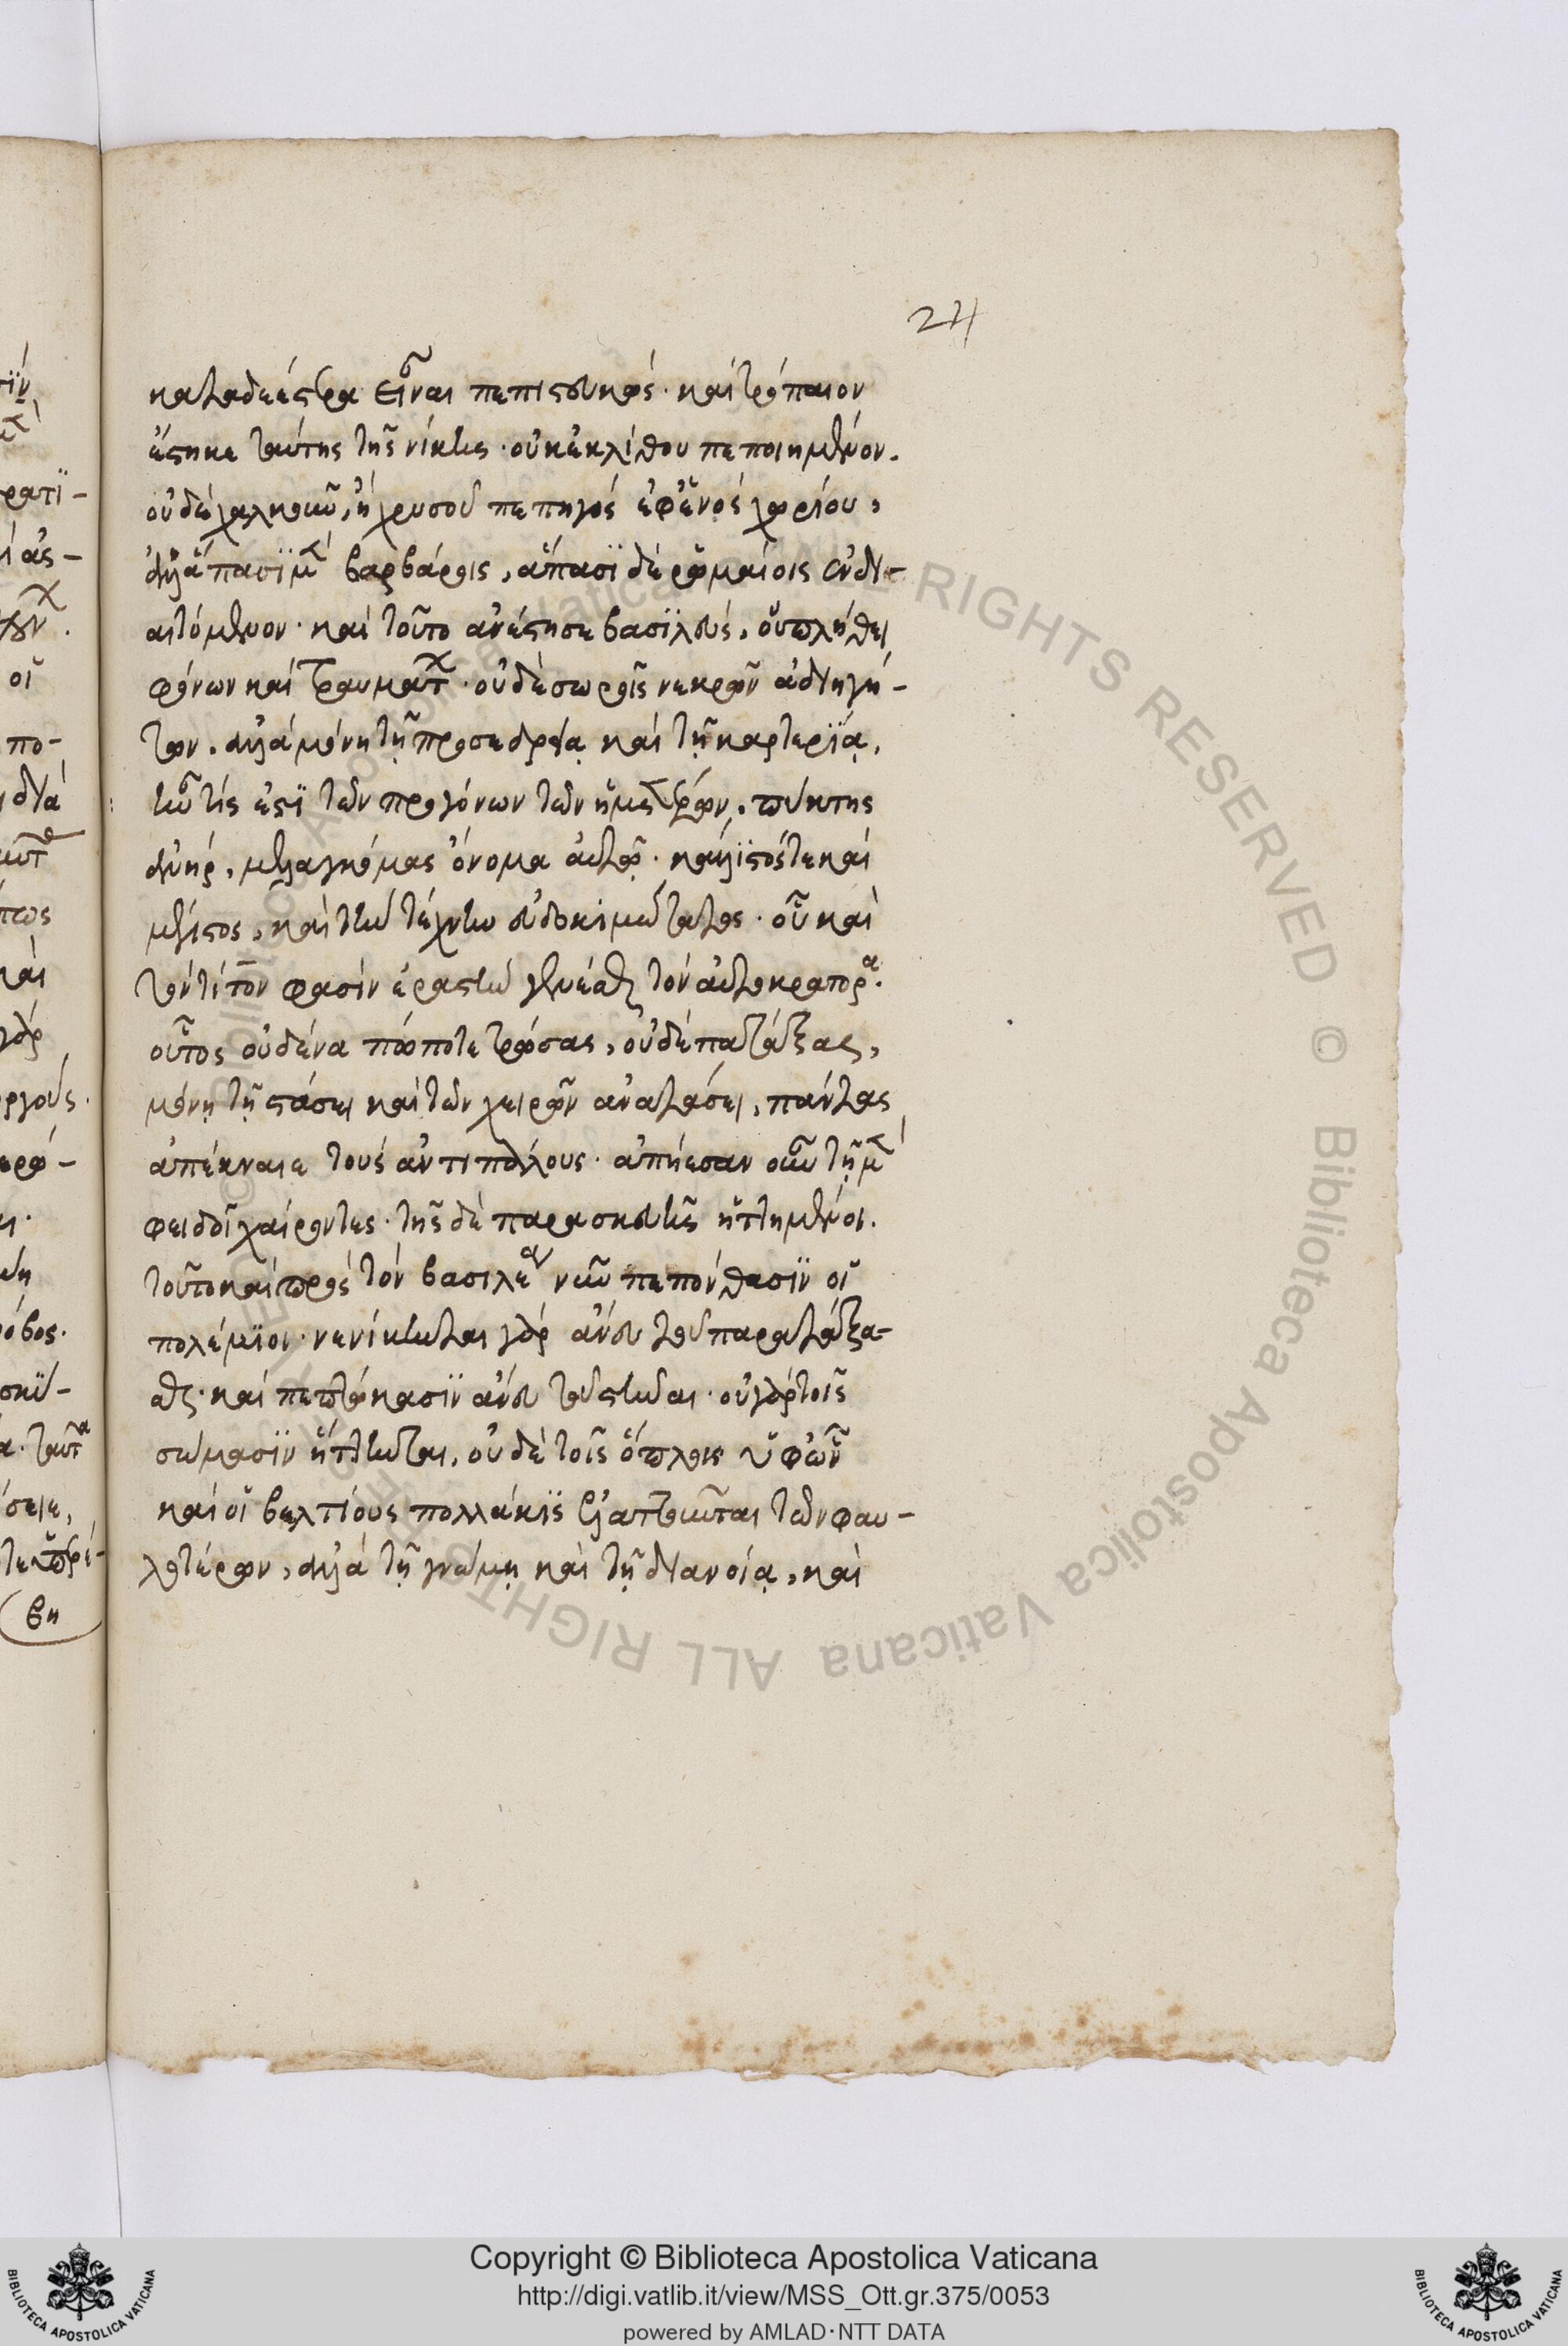 24
καταδεέστερα εἶναι πεπιστευκώς· καὶ τρόπαιον
ἔστηκε ταύτης τῆς νίκης· οὐκ ἐκ λίθου πεποιημένον.
οὐδὲ χαλκοῦ, ἢ χρυσοῦ πεπηγὸς ἐφ' ἑνὸς χωρίου,
ἀλλ' ἅπασϊ μὲν βαρβάροις, ἅπασϊ δὲ ῥωμαίοις ἐνδι-
αιτόμενον· καὶ τοῦτο ἀνέστησε βασϊλεύς, οὐ πλήθει
φόνων καὶ τραυμάτων· οὐδὲ σωροῖς νεκρῶν ἀδιηγή-
των. ἀλλὰ μόνῃ τῇ προσεδρείᾳ καὶ τῇ καρτερίᾳ,
ἦν τίς ἐστϊ τῶν προγόνων τῶν ἡμετέρων. πύκτης
ἀνήρ, μελαγκόμας ὄνομα αὐτῷ· κάλλϊστός τε καὶ
μέγϊστος, καὶ τὴν τέχνην εὐδοκιμώτατος· οὗ καὶ
τὸν τίτον φασὶν ἐραστὴν γενέσθαι τὸν αὐτοκράτορα.
οὗτος οὐδένα πώποτε τρώσας, οὐδὲ πατάξας,
μόνῃ τῇ στάσει καὶ τῶν χειρῶν ἀνατάσει, πάντας
ἀπέκναιε τοὺς ἀντιπάλους· ἀπῄεσαν οὖν τῇ μὲν
φειδοῖ χαίροντες· τῆς δὲ παρασκευῆς ἡττημένοι.
τοῦτο καὶ πρὸς τὸν βασιλέα νῦν πεπόνθασϊν οἱ
πολέμϊοι· νενίκηται γὰρ ἄνευ τοῦ παρατάξα-
σθαι· καὶ πεπτώκασϊν ἄνευ τοῦ στῆναι· οὐ γὰρ τοῖς
σώμασϊν ἥττηνται, οὐδὲ τοῖς ὅπλοις ὑφ' ὧν
καὶ οἱ βελτίους πολλάκϊς ἐλαττοῦνται τῶν φαυ-
λοτέρων, ἀλλὰ τῇ γνώμῃ καὶ τῇ διανοίᾳ, καὶ
Copyright © Biblioteca Apostolica Vaticana
http://digi.vatlib.it/view/MSS_Ott.gr.375/0053
powered by AMLAD·NTT DATA